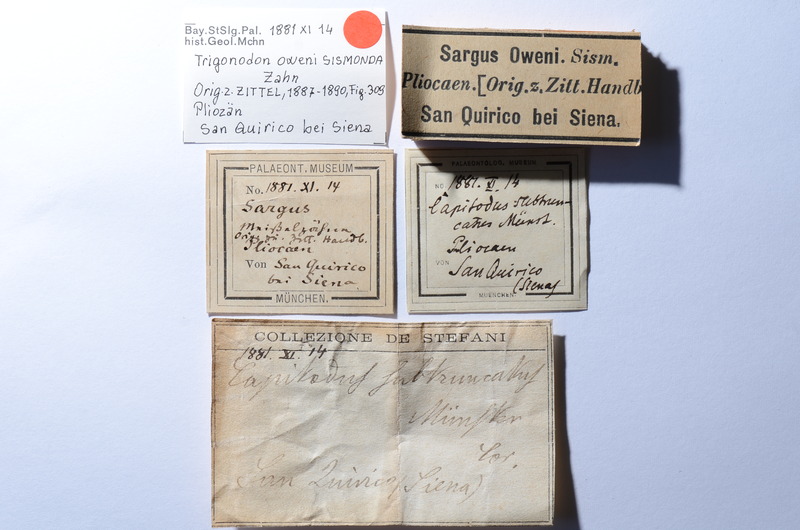 Bay.StSlg.Pal. 1881 XI 14
hist.Geol.Mchn
Trigonodon oweni SISMONDA
Zahn
Orig. z. ZITTEL, 1887-1890, Fig. 309
Pliozän
San Quirico bei Siena
Sargus Oweni. Sism.
Pliocaen. [Orig. z. Zitt. Handb
San Quirico bei Siena.
PALAEONT. MUSEUM
No. 1881. XI. 14
Sargus
Meißelzähne
Orig. zu. Zitt. Handb.
Pliocaen
Von San Quirico
bei Siena
MÜNCHEN.
PALAEONTOLOG. MUSEUM
No. 1881. XI. 14
Capitodus subtrun-
catus Münst.
Pliocaen
VON
San Quirico
(Siena)
MUENCHEN
COLLEZIONE DE STEFANI
1881. XI. 14
Capitodus subtruncatus
Münster
San Quirico (Siena)